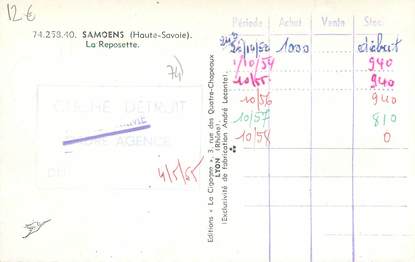 12€
74.258.40. SAMOENS (Haute-Savoie).
La Reposette.
74)
CLICHÉ DÉTRUIT
AGENCE
4/5/55
Editions " La Cigogne ", 3, rue des Quatre-Chapeaux
LYON (Rhône).
(Exclusivité de fabrication André Leconte).
Période Achat Vente Stock
1000 début
1/10/54 940
10/55 940
10/56 940
10/57 810
10/58 0